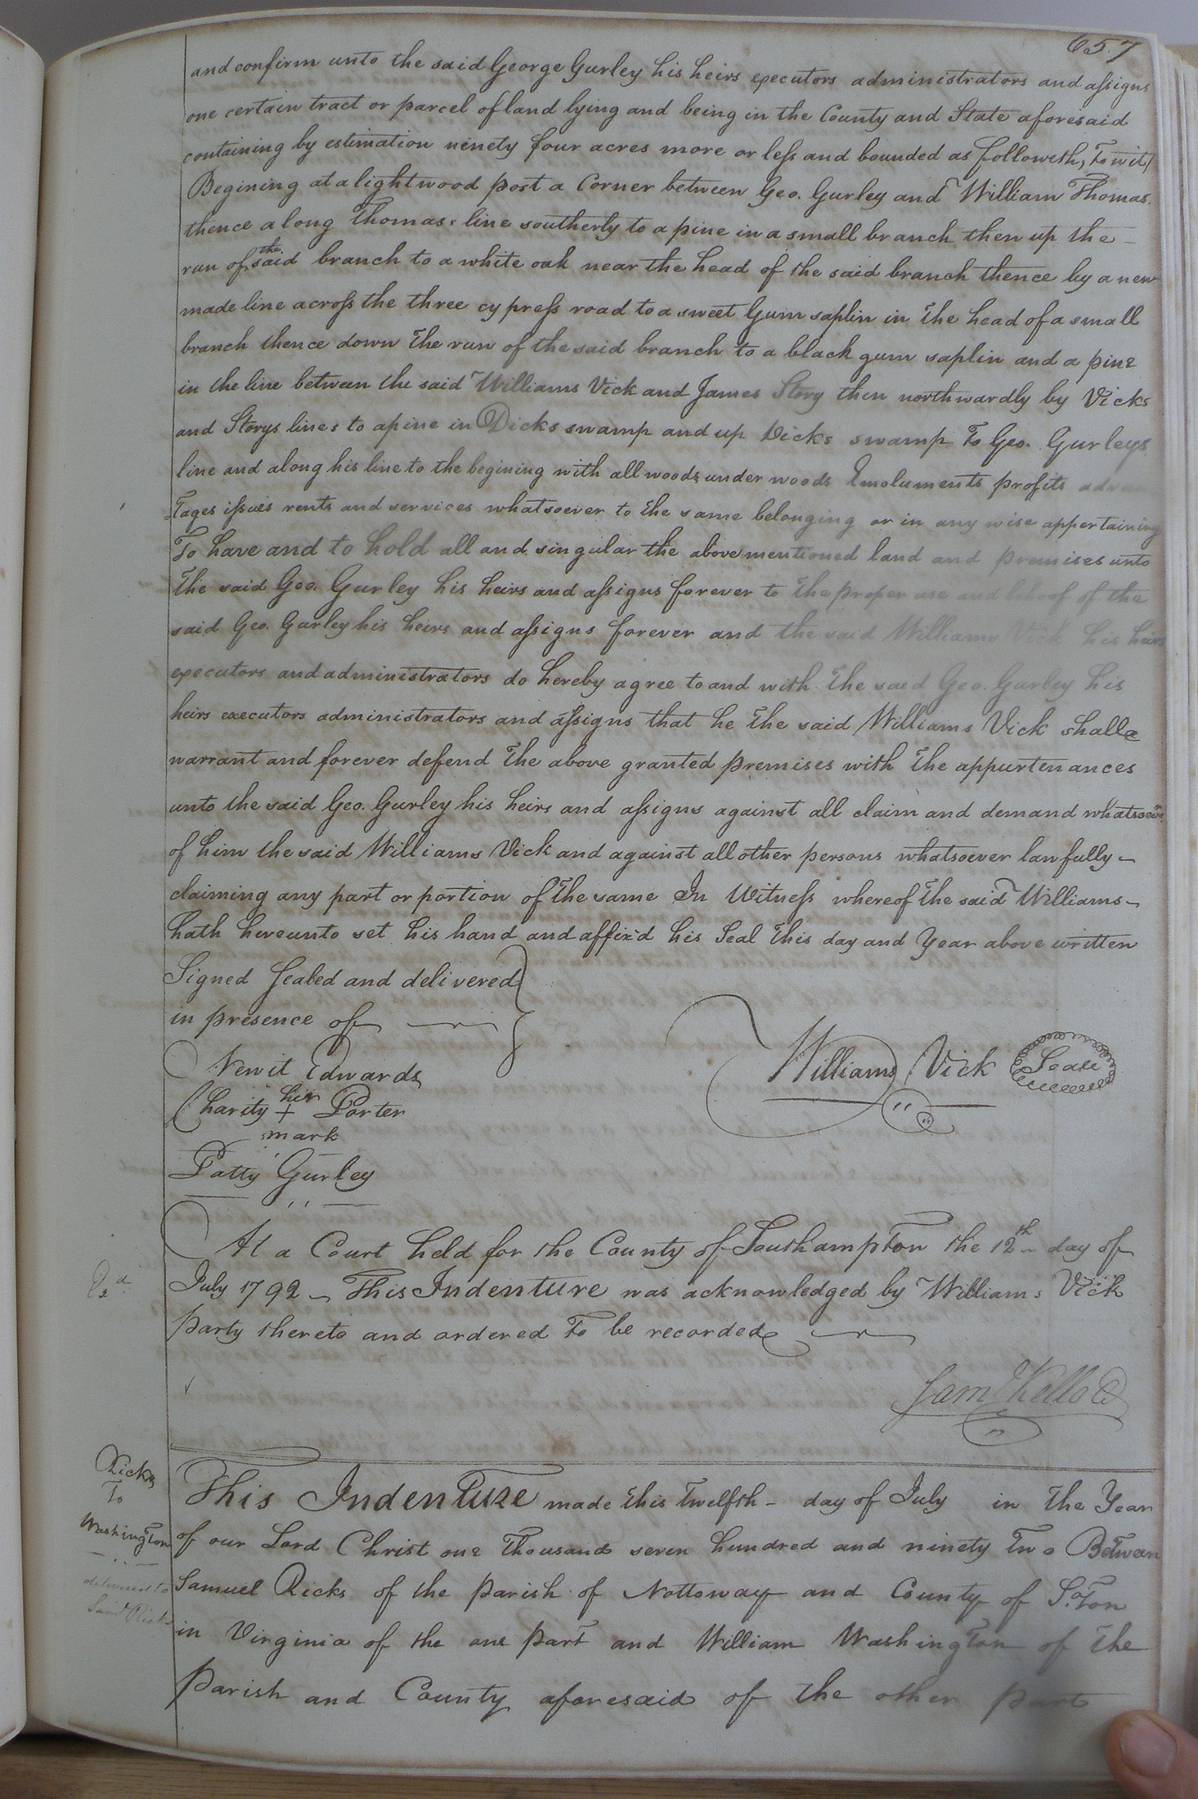 657
and confirm unto the said George Gurley his heirs executors administrators and assigns
one certain tract or parcel of land lying and being in the County and State aforesaid
containing by estimation ninety four acres more or less and bounded as followeth, To wit,
Begining at a lightwood post a Corner between Geo. Gurley and William Thomas.
thence along Thomas's line southerly to a pine in a small branch then up the
run of the said branch to a white oak near the head of the said branch thence by a new
made line across the three cypress road to a sweet Gum saplin in the head of a small
branch thence down the run of the said branch to a black gum saplin and a pine
in the line between the said Williams Vick and James Story then northwardly by Vicks
and Storys lines to a pine in Dicks swamp and up Dicks swamp To Geo. Gurleys
line and along his line to the begining with all woods under woods Emoluments profits advan
Tages issues rents and services whatsoever to the same belonging or in any wise appertaining
To have and to hold all and singular the above mentioned land and premises unto
the said Geo. Gurley his heirs and assigns forever to the proper use and behoof of the
said Geo. Gurley his heirs and assigns forever and the said Williams Vick his heirs
executors and administrators do hereby agree to and with the said Geo. Gurley his
heirs executors administrators and assigns that he the said Williams Vick shall
warrant and forever defend the above granted premises with the appurtenances
unto the said Geo. Gurley his heirs and assigns against all claim and demand whatsoever
of him the said Williams Vick and against all other persons whatsoever lawfully
claiming any part or portion of the same In Witness whereof the said Williams
hath hereunto set his hand and affix'd his Seal this day and Year above written
Signed Sealed and delivered
in presence of
Newit Edwards
Williams Vick Seal
Charity her + Porter
mark
Patty Gurley
At a Court held for the County of Southampton the 12th day of
July 1792 This Indenture was acknowledged by Williams Vick
Party thereto and ordered To be recorded
Saml Kello
Ricks
To
Washington
delivered to
Saml Ricks
This Indenture made this Twelfth day of July in the Year
of our Lord Christ one Thousand seven hundred and ninety Two Between
Samuel Ricks of the parish of Nottoway and County of S.oTon
in Virginia of the one part and William Washington of the
Parish and County aforesaid of the other part